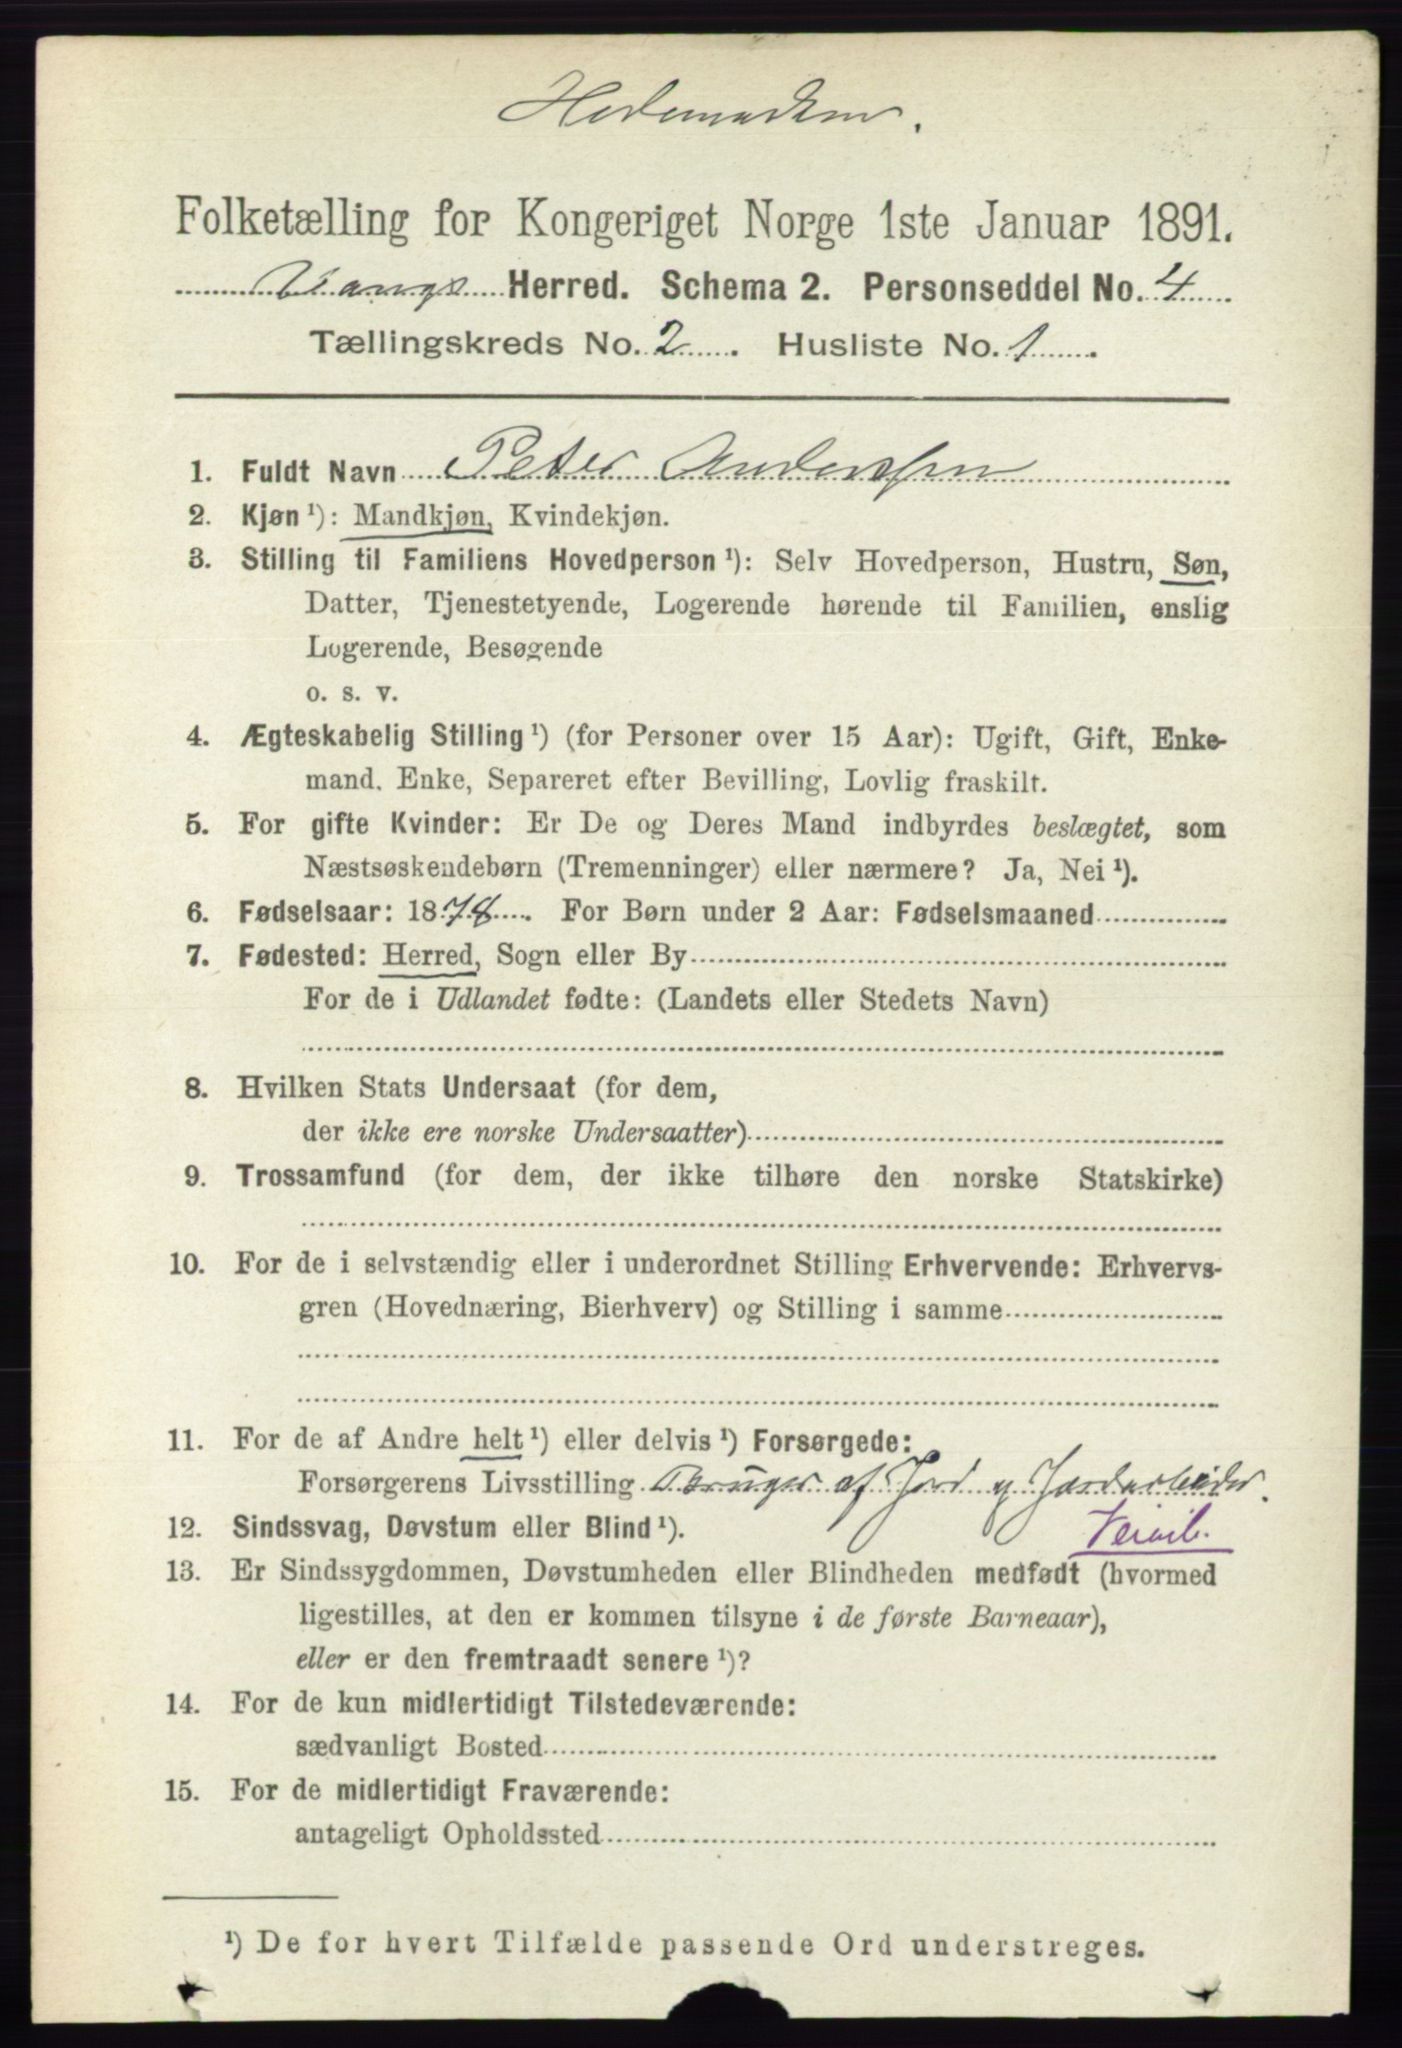 Hedemarken.
Folketælling for Kongeriget Norge 1ste Januar 1891.
Vangs Herred. Schema 2. Personseddel No. 4
Tællingskreds No. 2. Husliste No. 1.
1. Fuldt Navn Peter Anderssen
2. Kjøn ¹): Mandkjøn, Kvindekjøn.
3. Stilling til Familiens Hovedperson ¹): Selv Hovedperson, Hustru, Søn,
Datter, Tjenestetyende, Logerende hørende til Familien, enslig
Logerende, Besøgende
o. s. v.
4. Ægteskabelig Stilling ¹) (for Personer over 15 Aar): Ugift, Gift, Enke-
mand, Enke, Separeret efter Bevilling, Lovlig fraskilt.
5. For gifte Kvinder: Er De og Deres Mand indbyrdes beslægtet, som
Næstsøskendebørn (Tremenninger) eller nærmere? Ja, Nei ¹).
6. Fødselsaar: 1878. For Børn under 2 Aar: Fødselsmaaned
7. Fødested: Herred, Sogn eller By
For de i Udlandet fødte: (Landets eller Stedets Navn)
8. Hvilken Stats Undersaat (for dem,
der ikke ere norske Undersaatter)
9. Trossamfund (for dem, der ikke tilhøre den norske Statskirke)
10. For de i selvstændig eller i underordnet Stilling Erhvervende: Erhvervs-
gren (Hovednæring, Bierhverv) og Stilling i samme
11. For de af Andre helt ¹) eller delvis ¹) Forsørgede:
Forsørgerens Livsstilling Bruger af Jord og Jordarbeider.
12. Sindssvag, Døvstum eller Blind ¹).
13. Er Sindssygdommen, Døvstumheden eller Blindheden medfødt (hvormed
ligestilles, at den er kommen tilsyne i de første Barneaar),
eller er den fremtraadt senere ¹)?
14. For de kun midlertidigt Tilstedeværende:
sædvanligt Bosted
15. For de midlertidigt Fraværende:
antageligt Opholdssted
¹) De for hvert Tilfælde passende Ord understreges.